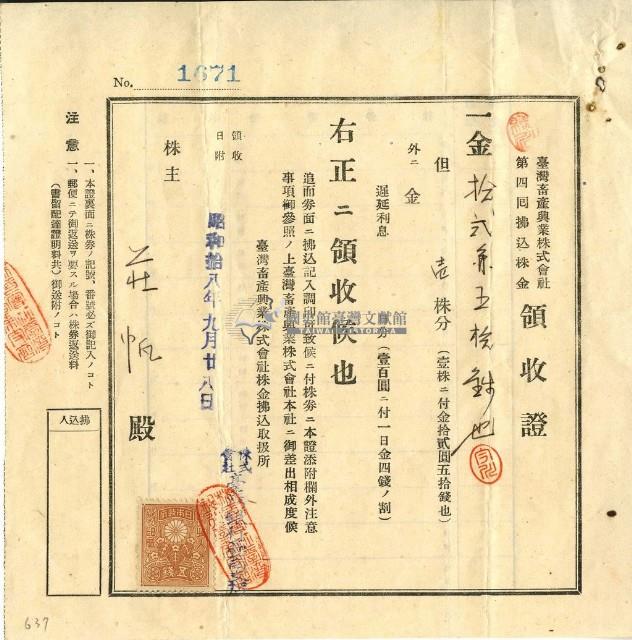 No. 1671
臺灣畜產興業株式會社
第四回拂込株金
領收證
一金拾弐円五拾錢也
但 壱株分（壹株ニ付金拾貳圓五拾錢也）
外ニ金
遲延利息 分（壹百圓ニ付一日金四錢ノ割）
右正ニ領收候也
追而劵面ニ拂込記入調印可致候ニ付株劵ニ本證添附欄外注意
事項御參照ノ上臺灣畜產興業株式會社本社ニ御差出相成度候
臺灣畜產興業株式會社株金拂込取扱所
株式會社
領收日附
昭和拾八年九月廿八日
株主
殿
注意
一、本證裏面ニ株劵ノ記號、番號必ズ御記入ノコト
一、郵便ニテ御返送ヲ要スル場合ハ株劵返送料
（書留配達證明料共）御送附ノコト
拂込人
國史館臺灣文獻館
TAIWAN HISTORICA
637